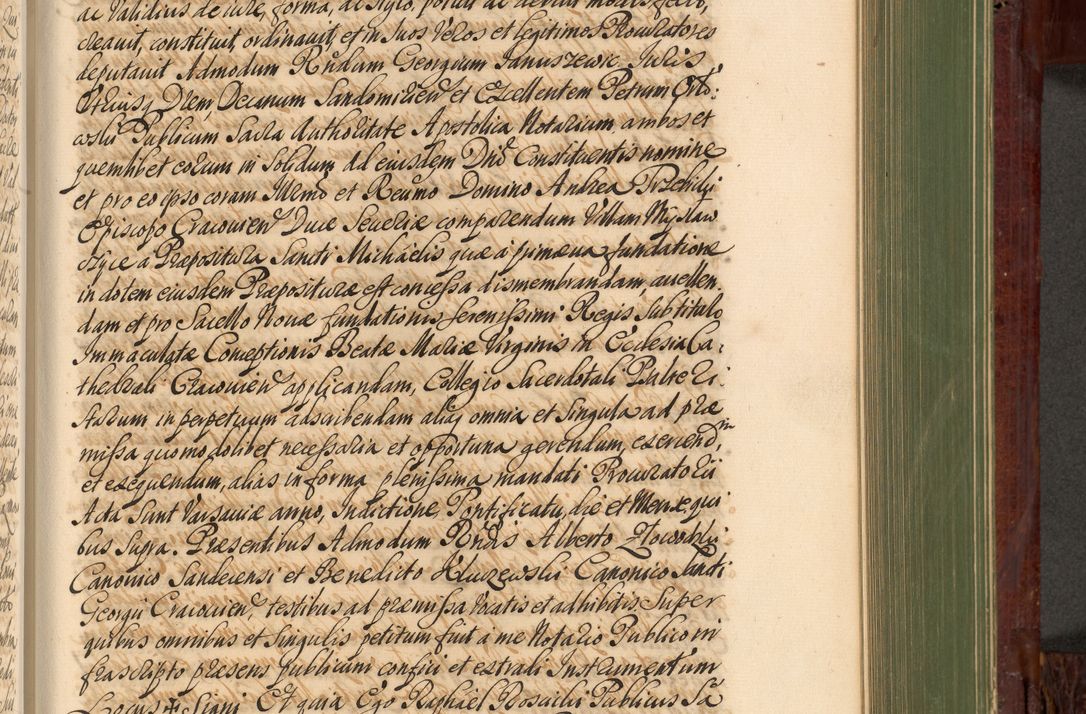 ac Validius de iure, forma, ac stylo, potuit ac debuit modis fecit,
creauit, constituit, ordinauit, et in suos Veros et legitimos Procuratores
deputauit Admodum Rndum Georgium Januszewic Juris
Vtriusq Drem, Decanum Sandomirien et Excellentem Petrum Orło:
wski Publicum Sacra Authoritate Apostolica Notarium, ambos et
quemlibet eorum in solidum Ad eiusdem Dni Constituentis nomine
et pro eo ipso coram Illmo et Reumo Domino Andrea Trzebicki
Episcopo Cracouien Duce Seueriæ comparendum Villam Mysław
czyce a Præpositura Sancti Michaelis quæ a primæua fundatione
in dotem eiusdem Præposituræ est concessa dismembrandam, auellen
dam et pro Sacello Nouæ fundationis Serenissimi Regis sub titulo
Immaculatæ Conceptionis Beatæ Mariæ Virginis in Ecclesia Ca:
thedrali Cracouien applicandam, Collegio Sacerdotali Psalte ri:
starum in perpetuum adscribendam aliaq omnia et singula ad præ
missa quomodolibet necessaria et opportuna gerendum, exercend
et exequendum, alias in forma plenissima mandati Procuratorii
Acta sunt Varsauiæ anno, Indictione, Pontificatu, die et Mense qui
bus supra. Præsentibus Admodum Rndis Alberto
Canonico Sandecensi et Benedicto Kluczewski Canonico Sancti
Georgii Cracouien, testibus ad præmissa vocatis et adhibitis Super
quibus omnibus et singulis petitum fuit a me Notario Publico in
frascripto præsens publicum confici et extradi Instrumentum
Locus Signi Et quia Ego Raphael Publicus Sa